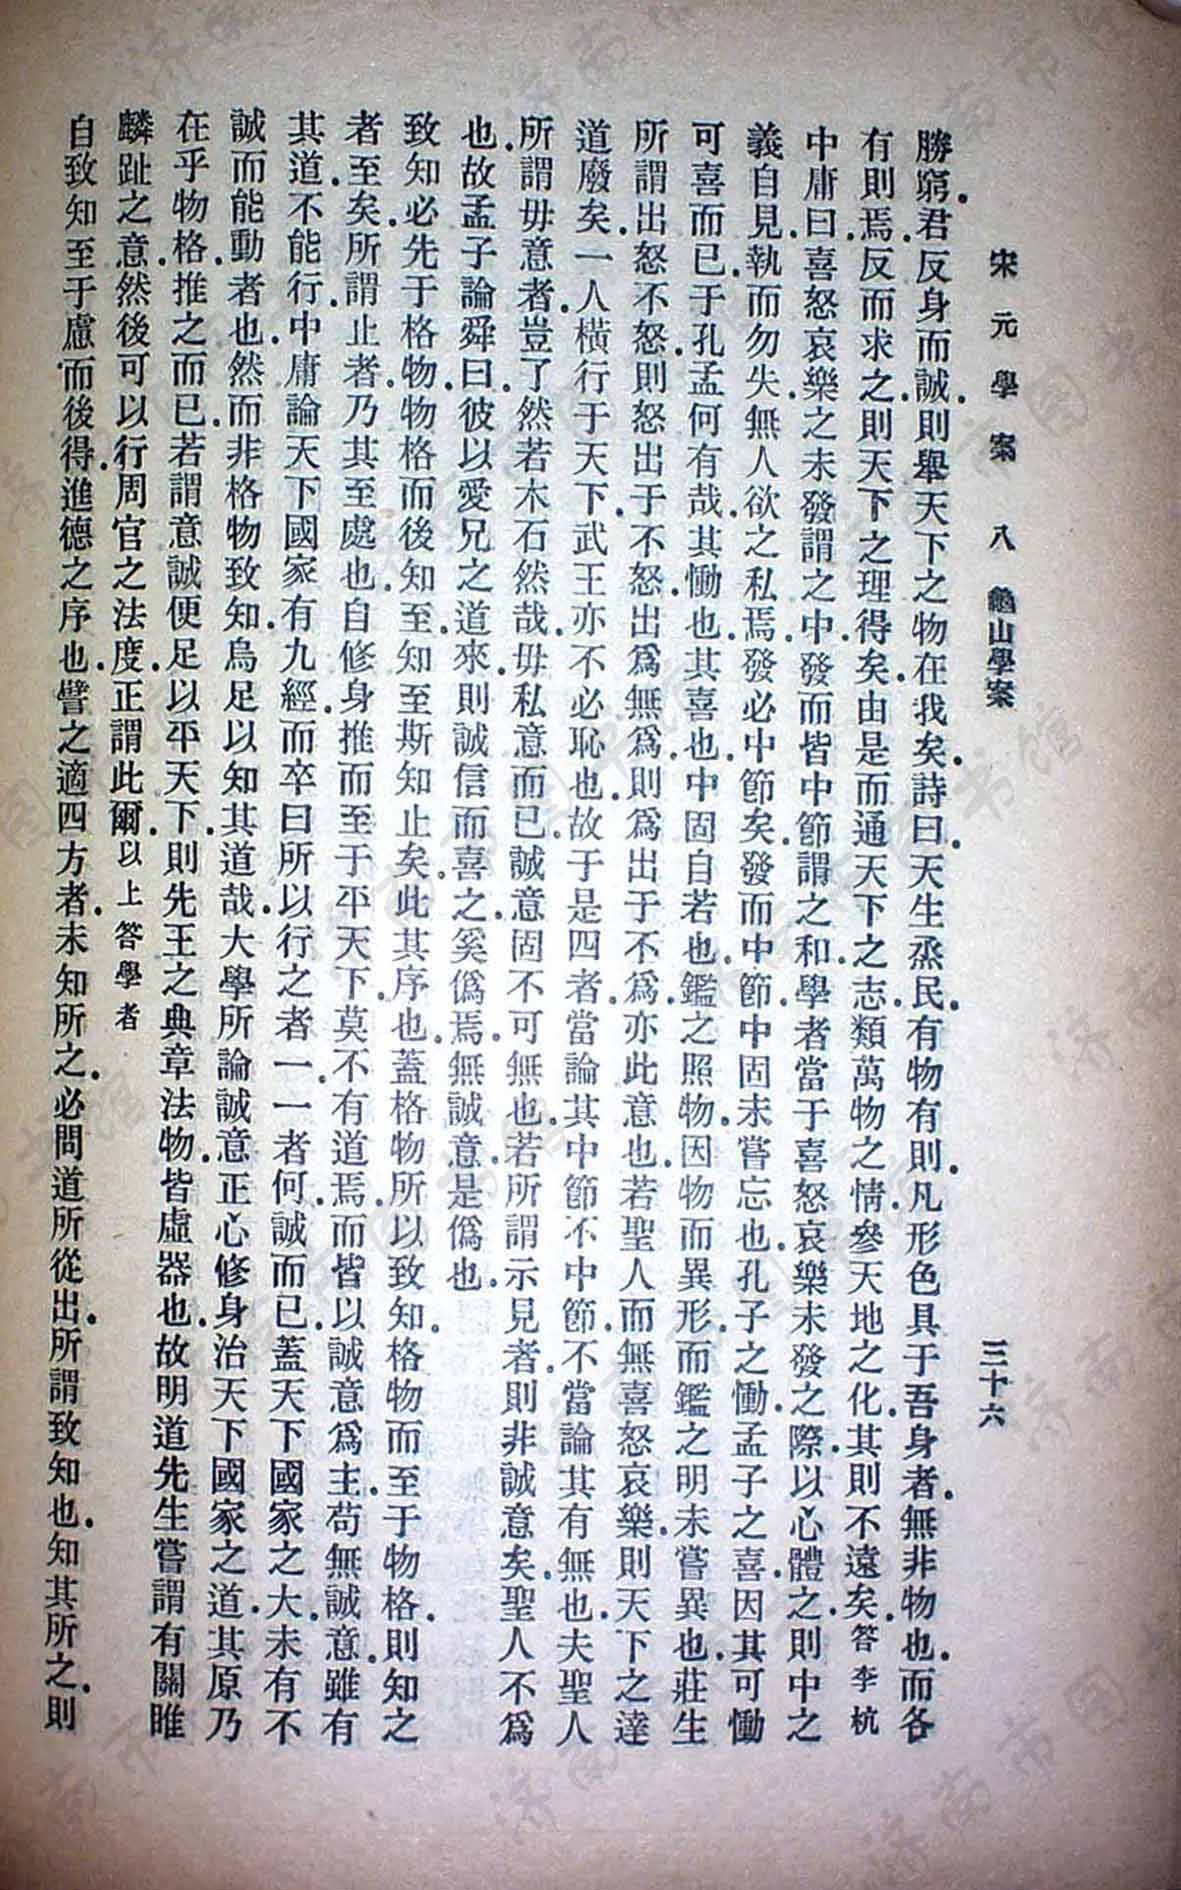 宋元學案 八 龜山學案 三十六
勝窮.君反身而誠.則舉天下之物在我矣.詩曰.天生烝民.有物有則.凡形色具于吾身者.無非物也.而各
有則焉.反而求之.則天下之理得矣.由是而通天下之志.類萬物之情.參天地之化.其則不遠矣.答李杭
中庸曰.喜怒哀樂之未發謂之中.發而皆中節謂之和.學者當于喜怒哀樂未發之際.以心體之.則中之
義自見.執而勿失.無人欲之私焉.發必中節矣.發而中節.中固未嘗忘也.孔子之慟.孟子之喜.因其可慟
可喜而已.于孔孟何有哉.其慟也.其喜也.中固自若也.鑑之照物.因物而異形.而鑑之明未嘗異也.莊生
所謂出怒不怒.則怒出于不怒.出爲無爲.則爲出于不爲.亦此意也.若聖人而無喜怒哀樂.則天下之達
道廢矣.一人橫行于天下.武王亦不必恥也.故于是四者.當論其中節不中節.不當論其有無也.夫聖人
所謂毋意者.豈了然若木石然哉.毋私意而已.誠意固不可無也.若所謂示見者.則非誠意矣.聖人不爲
也.故孟子論舜曰.彼以愛兄之道來.則誠信而喜之.奚僞焉.無誠意是僞也.
致知必先于格物.物格而後知至.知至斯知止矣.此其序也.蓋格物所以致知.格物而至于物格.則知之
者至矣.所謂止者.乃其至處也.自修身推而至于平天下.莫不有道焉.而皆以誠意爲主.苟無誠意.雖有
其道.不能行.中庸論天下國家有九經.而卒曰所以行之者一.一者何.誠而已.蓋天下國家之大.未有不
誠而能動者也.然而非格物致知.烏足以知其道哉.大學所論誠意正心修身治天下國家之道.其原乃
在乎物格.推之而已.若謂意誠便足以平天下.則先王之典章法物.皆虛器也.故明道先生嘗謂有關睢
麟趾之意.然後可以行周官之法度.正謂此爾.以上答學者
自致知至于慮而後得.進德之序也.譬之適四方者.未知所之.必問道所從出.所謂致知也.知其所之.則